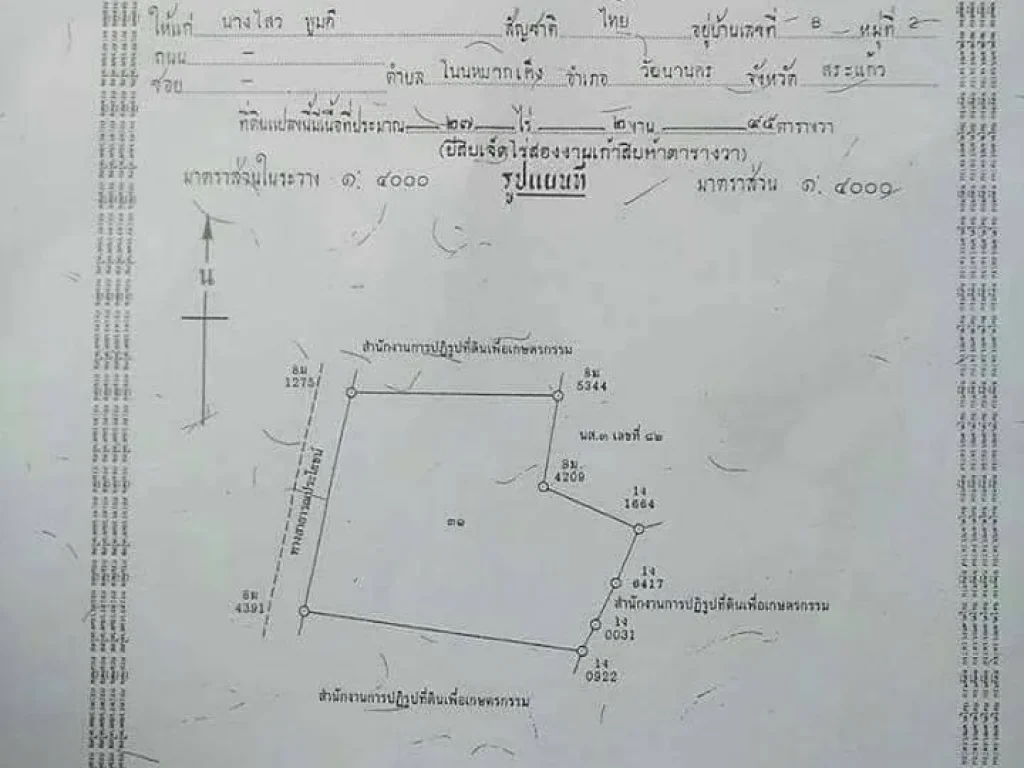 ให้แก่ นางไสว ชูมณี สัญชาติ ไทย อยู่บ้านเลขที่ 8 หมู่ที่ 2
ถนน –
ซอย – ตำบล โนนหมากเค็ง อำเภอ วัฒนานคร จังหวัด สระแก้ว
ที่ดินแปลงนี้มีเนื้อที่ประมาณ ๒๗ ไร่ ๒ งาน ๙๕ ตารางวา
(ยี่สิบเจ็ดไร่สองงานเก้าสิบห้าตารางวา)
มาตราส่วนในระวาง ๑: ๔๐๐๐ รูปแผนที่ มาตราส่วน ๑: ๔๐๐๐
น
สำนักงานการปฏิรูปที่ดินเพื่อเกษตรกรรม
8ม
1275
8ม
5344
นส.๓ เลขที่ ๘๒
8ม
4209
1ง
1664
ทางสาธารณประโยชน์
๓๑
1ง
6417
8ม
4391
สำนักงานการปฏิรูปที่ดินเพื่อเกษตรกรรม
1ง
0031
1ง
0922
สำนักงานการปฏิรูปที่ดินเพื่อเกษตรกรรม